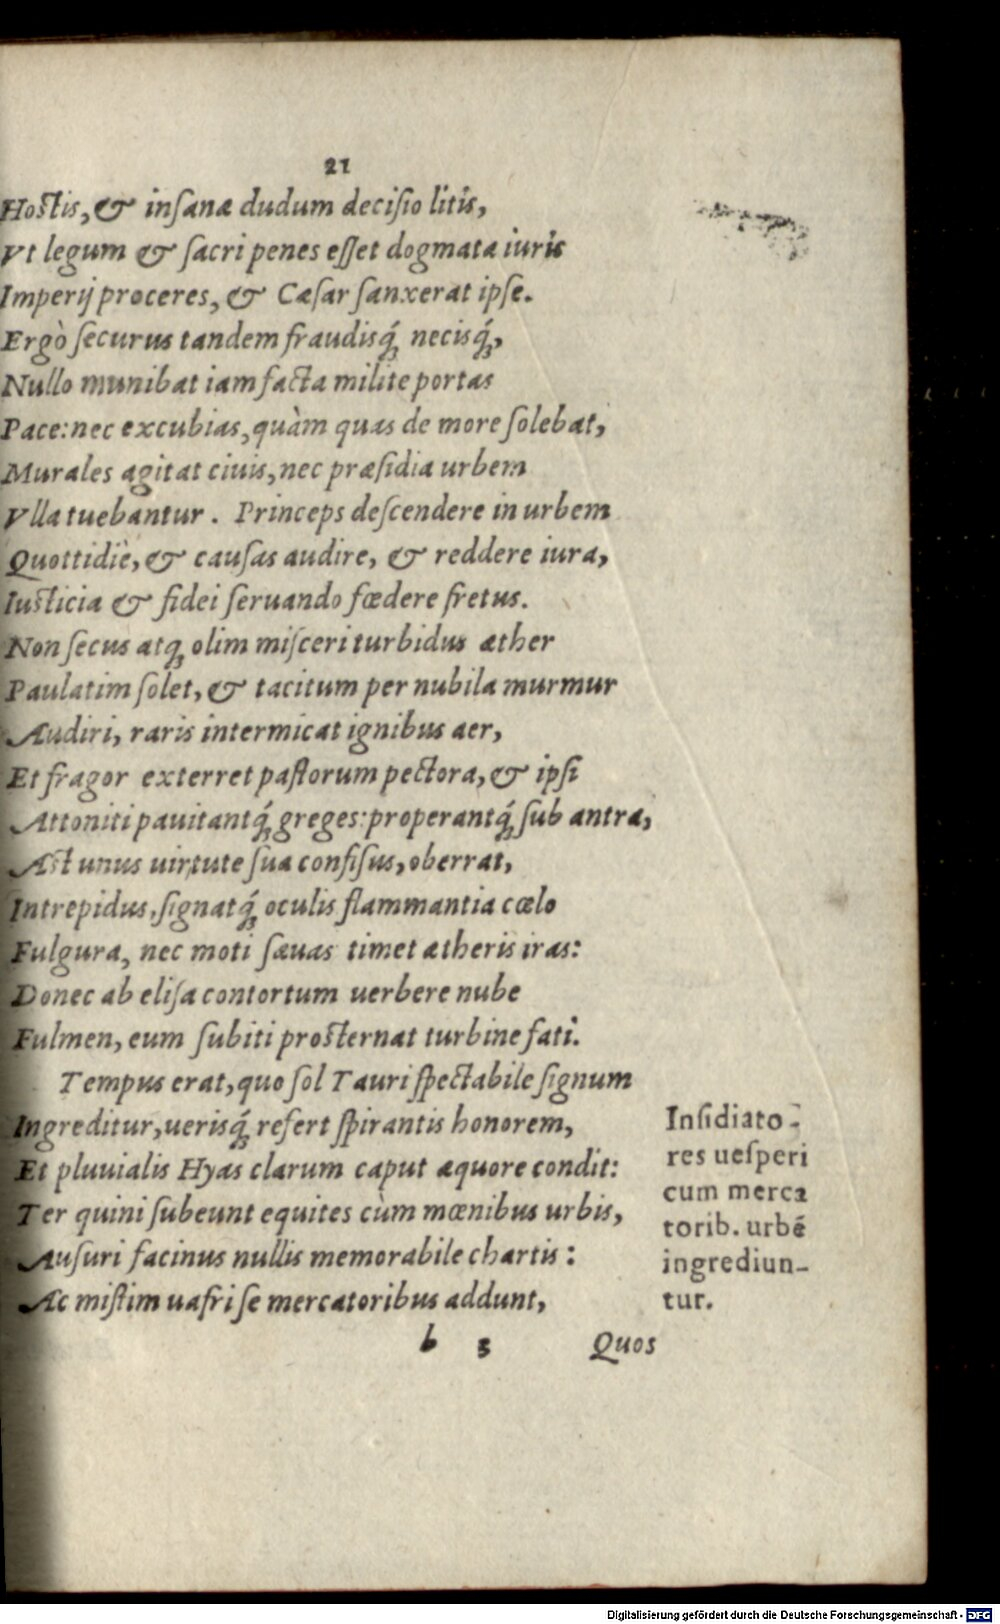 21
Hostis, & inſanæ dudum deciſio litis,
Vt legum & ſacri penes eſſet dogmata iuris
Imperij proceres, & Cæſar ſanxerat ipſe.
Ergò ſecurus tandem fraudisq́ꝫ necisq́ꝫ,
Nullo munibat iam facta milite portas
Pace: nec excubias, quàm quas de more ſolebat,
Murales agitat ciuis, nec præſidia urbem
Vlla tuebantur. Princeps deſcendere in urbem
Quottidiè, & cauſas audire, & reddere iura,
Iusticia & fidei ſeruando fœdere fretus.
Non ſecus atqꝫ olim miſceri turbidus æther
Paulatim ſolet, & tacitum per nubila murmur
Audiri, raris intermicat ignibus aer,
Et fragor exterret paſtorum pectora, & ipſi
Attoniti pauitantq́ꝫ greges: properantq́ꝫ ſub antra,
Ast unus uirtute ſua confiſus, oberrat,
Intrepidus, ſignatq́ꝫ oculis flammantia cœlo
Fulgura, nec moti ſæuas timet ætheris iras:
Donec ab eliſa contortum uerbere nube
Fulmen, eum ſubiti prosternat turbine fati.
Tempus erat, quo ſol Tauri ſpectabile ſignum
Ingreditur, uerisq́ꝫ refert ſpirantis honorem,
Et pluuialis Hyas clarum caput æquore condit:
Ter quini ſubeunt equites cùm mœnibus urbis,
Auſuri facinus nullis memorabile chartis:
Ac miſtim uafri ſe mercatoribus addunt,
Inſidiato-
res ueſperi
cum merca
torib. urbē
ingrediun-
tur.
b 3 Quos
Digitalisierung gefördert durch die Deutsche Forschungsgemeinschaft - DFG